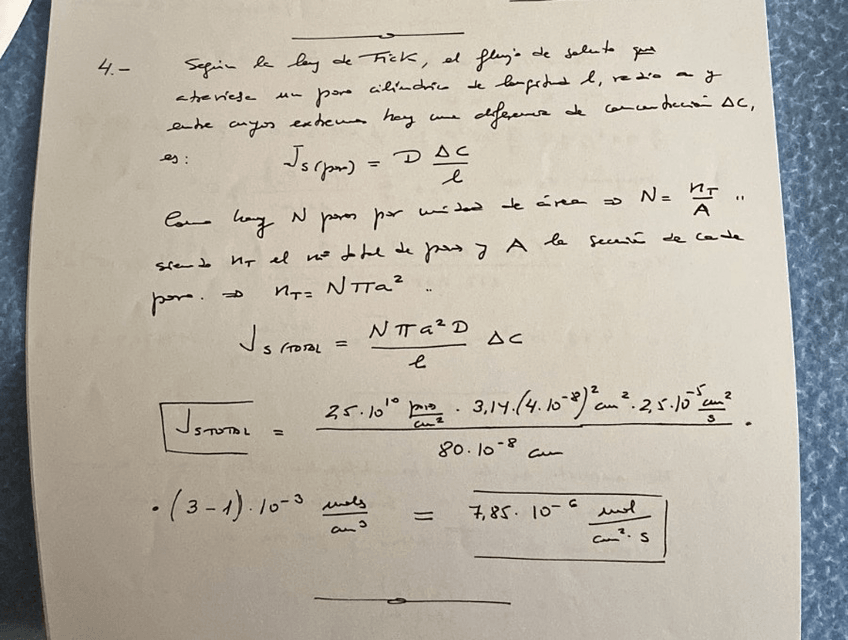 4.- Según la ley de Fick, el flujo de soluto que
atraviesa un poro cilíndrico de longitud l, radio a y
entre cuyos extremos hay una diferencia de concentración ΔC,
es: Js (poro) = D ΔC / l
Como hay N poros por unidad de área ⇒ N = nT / A ..
siendo nT el nº total de poros y A la sección de cada
poro. ⇒ nT = Nπa² ..
Js (TOTAL = Nπa²D / l ΔC
Js TOTAL = 2,5·10¹⁰ poros/cm² · 3,14·(4·10⁻⁸)² cm² · 2,5·10⁻⁵ cm²/s / 80·10⁻⁸ cm ·
· (3-1)·10⁻³ mols/cm³ = 7,85·10⁻⁶ mol/cm²·s